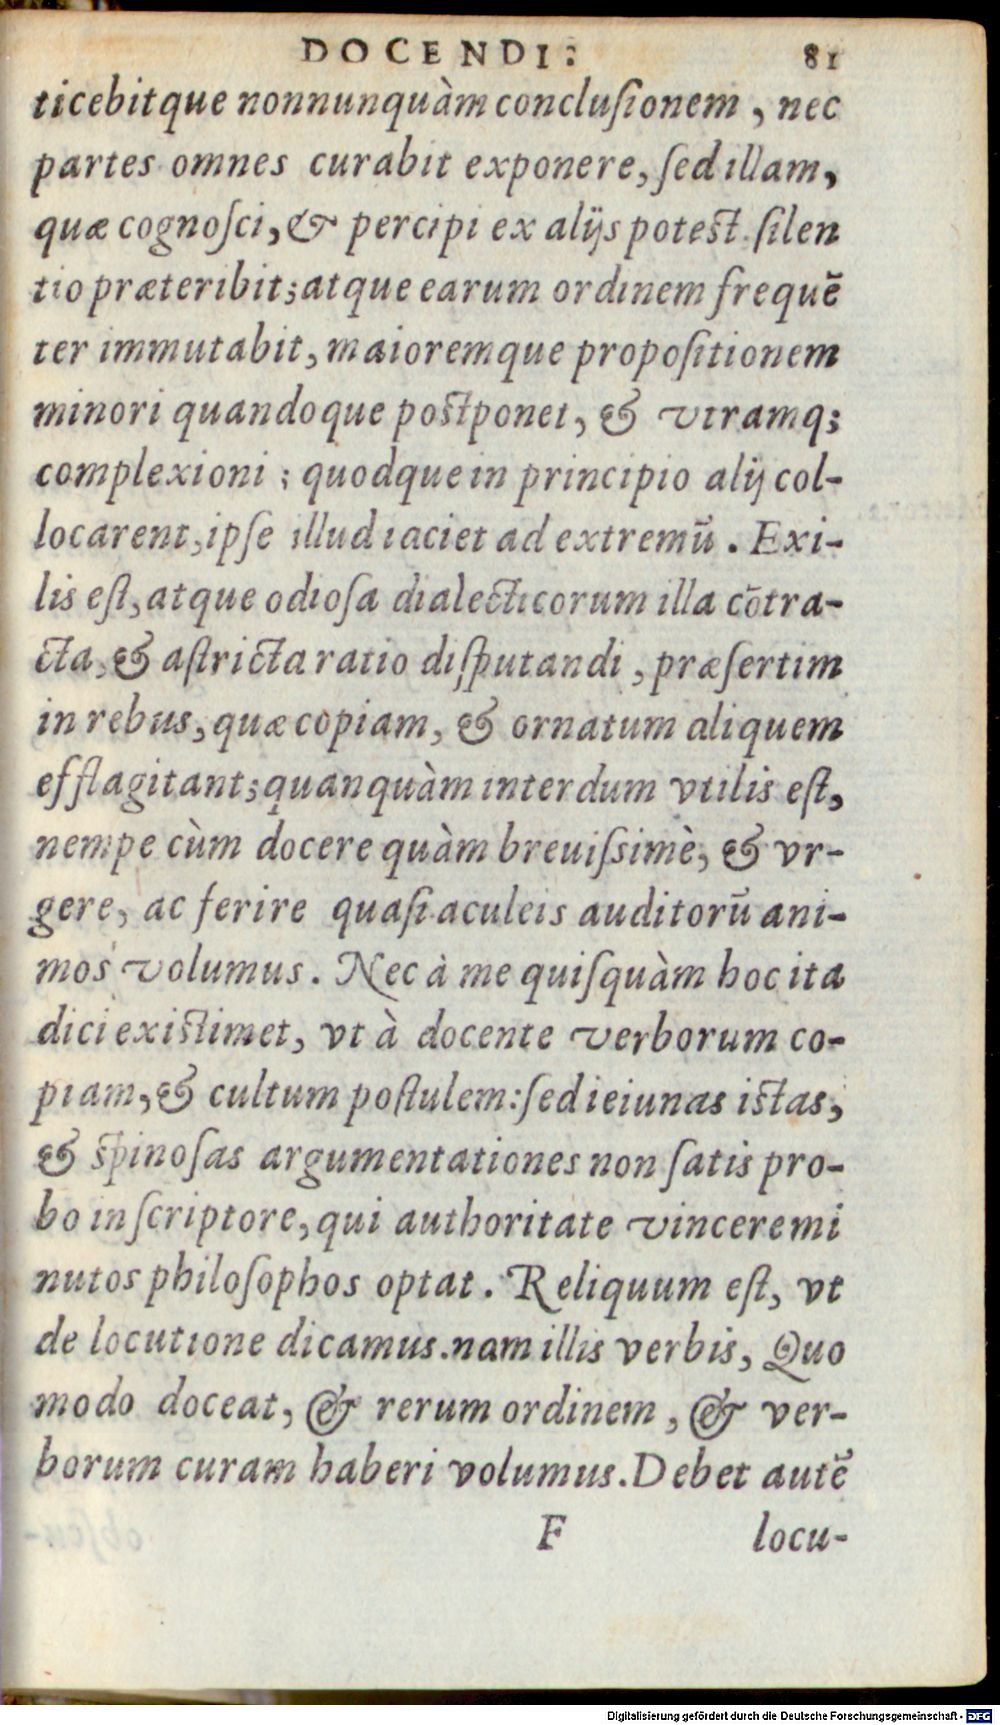 DOCENDI: 81
ticebitque nonnunquàm conclusionem, nec
partes omnes curabit exponere, ſed illam,
quæ cognoſci, & percipi ex alijs potest ſilen
tio præteribit; atque earum ordinem frequẽ
ter immutabit, maioremque propoſitionem
minori quandoque postponet, & vtramq;
complexioni; quodque in principio alij col-
locarent, ipſe illud iaciet ad extremũ. Exi-
lis eſt, atque odioſa dialecticorum illa cõtra-
cta, & aſtricta ratio diſputandi, præſertim
in rebus, quæ copiam, & ornatum aliquem
efflagitant; quanquàm interdum vtilis eſt,
nempe cùm docere quàm breuiſsimè, & vr-
gere, ac ferire quaſi aculeis auditorũ ani-
mos volumus. Nec à me quiſquàm hoc ita
dici existimet, vt à docente verborum co-
piam, & cultum poſtulem: ſed ieiunas istas,
& spinoſas argumentationes non ſatis pro-
bo in ſcriptore, qui authoritate vincere mi
nutos philoſophos optat. Reliquum eſt, vt
de locutione dicamus. nam illis verbis, Quo
modo doceat, & rerum ordinem, & ver-
borum curam haberi volumus. Debet autẽ
F locu-
Digitalisierung gefördert durch die Deutsche Forschungsgemeinschaft - DFG